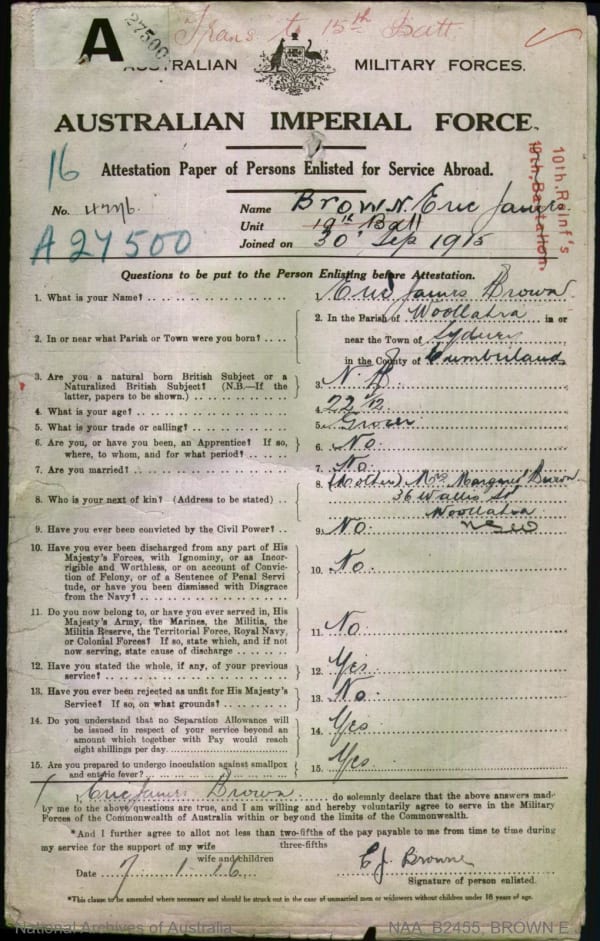 27500 Trans to 15th Batt
A
AUSTRALIAN MILITARY FORCES.
AUSTRALIAN IMPERIAL FORCE.
16
Attestation Paper of Persons Enlisted for Service Abroad.
10th Reinf's
19th Battalion
No. Name Brown. Eric James
Unit 19th Batt
A27500
Joined on 30 Sep 1915
Questions to be put to the Person Enlisting before Attestation.
1. What is your Name? Eric James Brown
2. In or near what Parish or Town were you born? 2. In the Parish of Woollahra in or
near the Town of Sydney
in the County of Cumberland
3. Are you a natural born British Subject or a
Naturalized British Subject? (N.B.—If the
latter, papers to be shown.) 3. N.B
4. What is your age? 4. 22
5. What is your trade or calling? 5. Grocer
6. Are you, or have you been, an Apprentice? If so,
where, to whom, and for what period? 6. No.
7. Are you married? 7. No
8. Who is your next of kin? (Address to be stated) 8. (Mother) Mrs Margaret Brown
36 Wallis St
Woollahra
NSW
9. Have you ever been convicted by the Civil Power? 9. No.
10. Have you ever been discharged from any part of His
Majesty's Forces, with Ignominy, or as Incor-
rigible and Worthless, or on account of Convic-
tion of Felony, or of a Sentence of Penal Servi-
tude, or have you been dismissed with Disgrace
from the Navy? 10. No.
11. Do you now belong to, or have you ever served in, His
Majesty's Army, the Marines, the Militia, the
Militia Reserve, the Territorial Force, Royal Navy,
or Colonial Forces? If so, state which, and if not
now serving, state cause of discharge 11. No.
12. Have you stated the whole, if any, of your previous
service? 12. Yes
13. Have you ever been rejected as unfit for His Majesty's
Service? If so, on what grounds? 13. No.
14. Do you understand that no Separation Allowance will
be issued in respect of your service beyond an
amount which together with Pay would reach
eight shillings per day 14. Yes
15. Are you prepared to undergo inoculation against smallpox
and enteric fever? 15. Yes
I Eric James Brown do solemnly declare that the above answers made
by me to the above questions are true, and I am willing and hereby voluntarily agree to serve in the Military
Forces of the Commonwealth of Australia within or beyond the limits of the Commonwealth.
*And I further agree to allot not less than two-fifths of the pay payable to me from time to time during
three-fifths
my service for the support of my wife
wife and children
Date 7 1 16 E J Brown
Signature of person enlisted.
*This clause to be amended where necessary and should be struck out in the case of unmarried men or widowers without children under 18 years of age.
National Archives of Australia NAA: B2455, BROWN E J